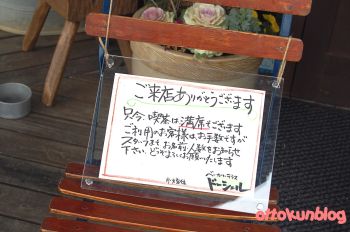 ご来店ありがとうございます
只今、喫茶は満席でございます
ご利用のお客様は、お手数ですが
スタッフまでお名前、人数をお知らせ
下さい。どうぞよろしくお願いいたします
ドーシェル
ottokunblog